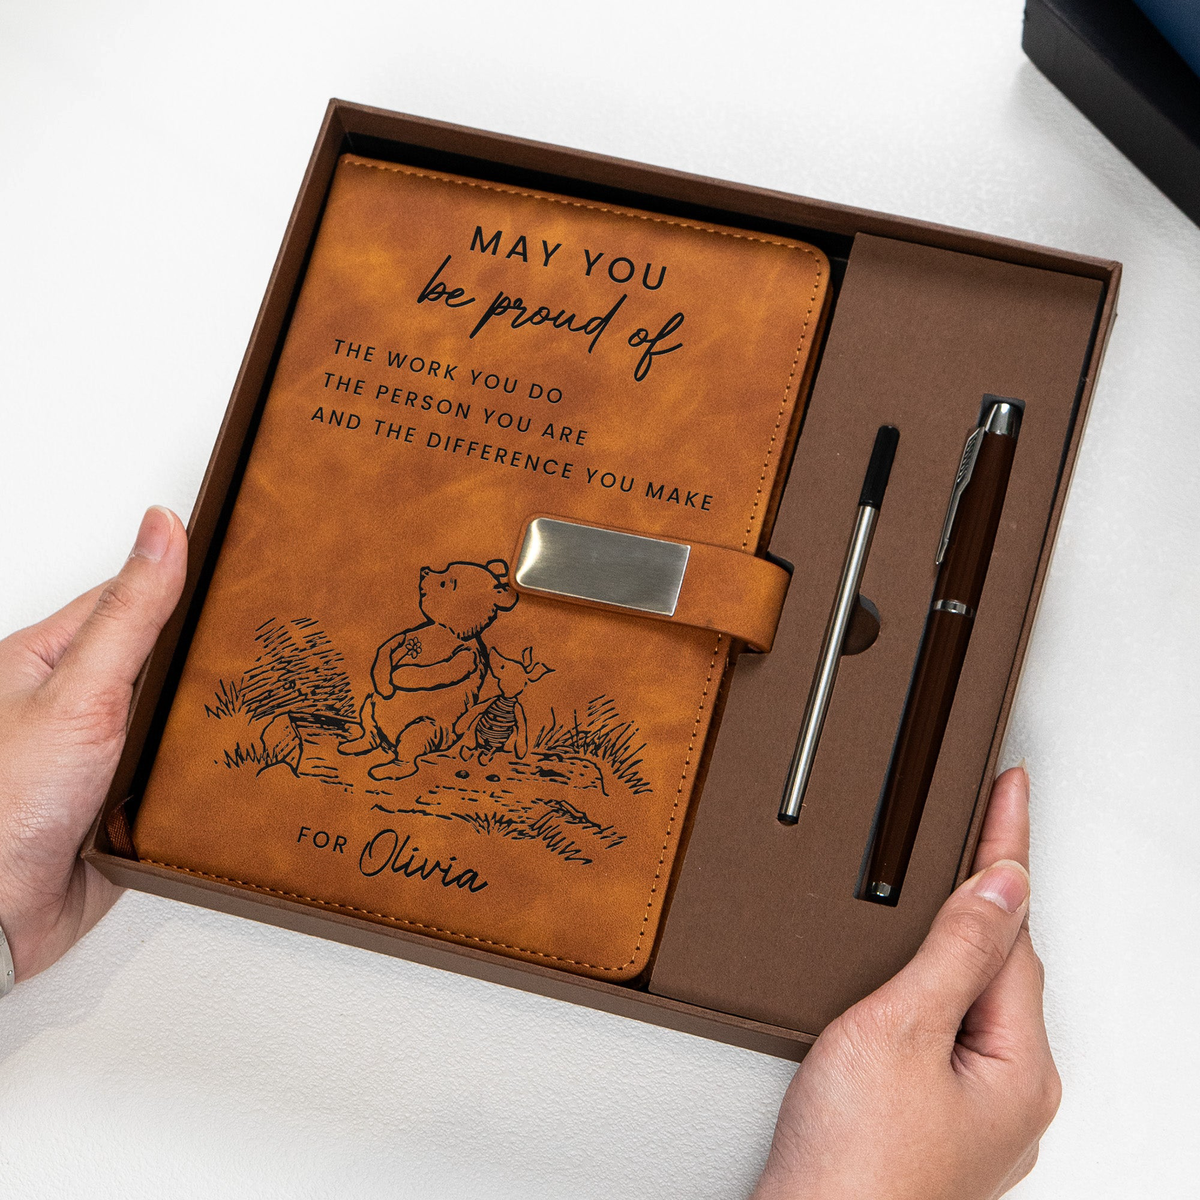 MAY YOU
be proud of
THE WORK YOU DO
THE PERSON YOU ARE
AND THE DIFFERENCE YOU MAKE
FOR Olivia